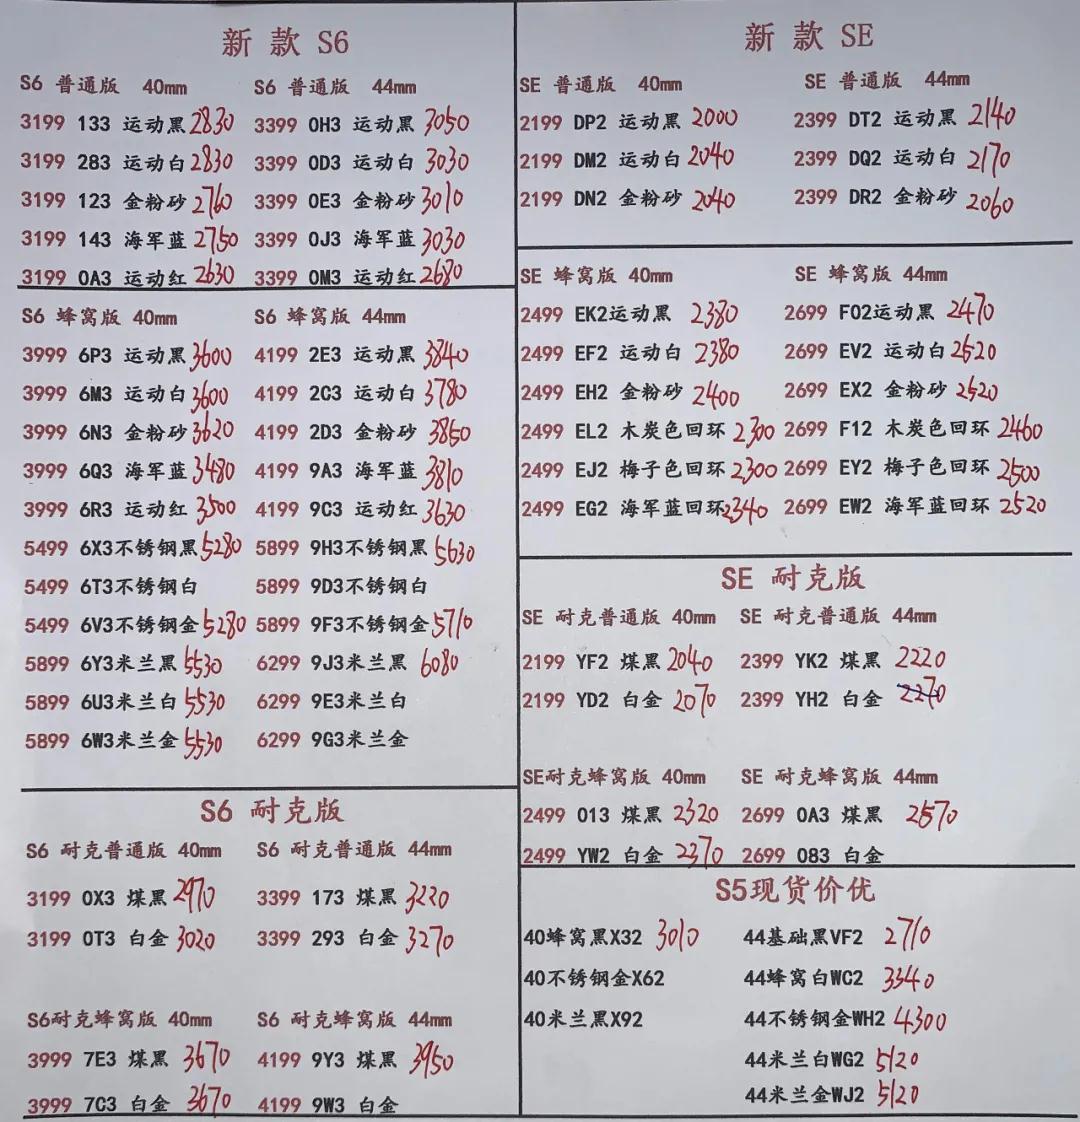 新 款 S6
S6 普通版 40mm S6 普通版 44mm
3199 133 运动黑 2830 3399 0H3 运动黑 3050
3199 283 运动白 2830 3399 0D3 运动白 3030
3199 123 金粉砂 2760 3399 0E3 金粉砂 3010
3199 143 海军蓝 2750 3399 0J3 海军蓝 3030
3199 0A3 运动红 2630 3399 0M3 运动红 2680
S6 蜂窝版 40mm S6 蜂窝版 44mm
3999 6P3 运动黑 3600 4199 2E3 运动黑 3840
3999 6M3 运动白 3600 4199 2C3 运动白 3780
3999 6N3 金粉砂 3620 4199 2D3 金粉砂 3850
3999 6Q3 海军蓝 3480 4199 9A3 海军蓝 3810
3999 6R3 运动红 3500 4199 9C3 运动红 3630
5499 6X3不锈钢黑 5280 5899 9H3不锈钢黑 5630
5499 6T3不锈钢白 5899 9D3不锈钢白
5499 6V3不锈钢金 5280 5899 9F3不锈钢金 5710
5899 6Y3米兰黑 5530 6299 9J3米兰黑 6080
5899 6U3米兰白 5530 6299 9E3米兰白
5899 6W3米兰金 5530 6299 9G3米兰金
S6 耐克版
S6 耐克普通版 40mm S6 耐克普通版 44mm
3199 0X3 煤黑 2970 3399 173 煤黑 3220
3199 0T3 白金 3020 3399 293 白金 3270
S6耐克蜂窝版 40mm S6 耐克蜂窝版 44mm
3999 7E3 煤黑 3670 4199 9Y3 煤黑 3950
3999 7C3 白金 3670 4199 9W3 白金
新 款 SE
SE 普通版 40mm SE 普通版 44mm
2199 DP2 运动黑 2000 2399 DT2 运动黑 2140
2199 DM2 运动白 2040 2399 DQ2 运动白 2170
2199 DN2 金粉砂 2040 2399 DR2 金粉砂 2060
SE 蜂窝版 40mm SE 蜂窝版 44mm
2499 EK2运动黑 2380 2699 F02运动黑 2470
2499 EF2 运动白 2380 2699 EV2 运动白 2520
2499 EH2 金粉砂 2400 2699 EX2 金粉砂 2520
2499 EL2 木炭色回环 2300 2699 F12 木炭色回环 2460
2499 EJ2 梅子色回环 2300 2699 EY2 梅子色回环 2500
2499 EG2 海军蓝回环 2340 2699 EW2 海军蓝回环 2520
SE 耐克版
SE 耐克普通版 40mm SE 耐克普通版 44mm
2199 YF2 煤黑 2040 2399 YK2 煤黑 2220
2199 YD2 白金 2070 2399 YH2 白金 2270
SE耐克蜂窝版 40mm SE 耐克蜂窝版 44mm
2499 013 煤黑 2320 2699 0A3 煤黑 2570
2499 YW2 白金 2370 2699 083 白金
S5现货价优
40蜂窝黑X32 3010 44基础黑VF2 2710
40不锈钢金X62 44蜂窝白WC2 3340
40米兰黑X92 44不锈钢金WH2 4300
44米兰白WG2 5120
44米兰金WJ2 5120